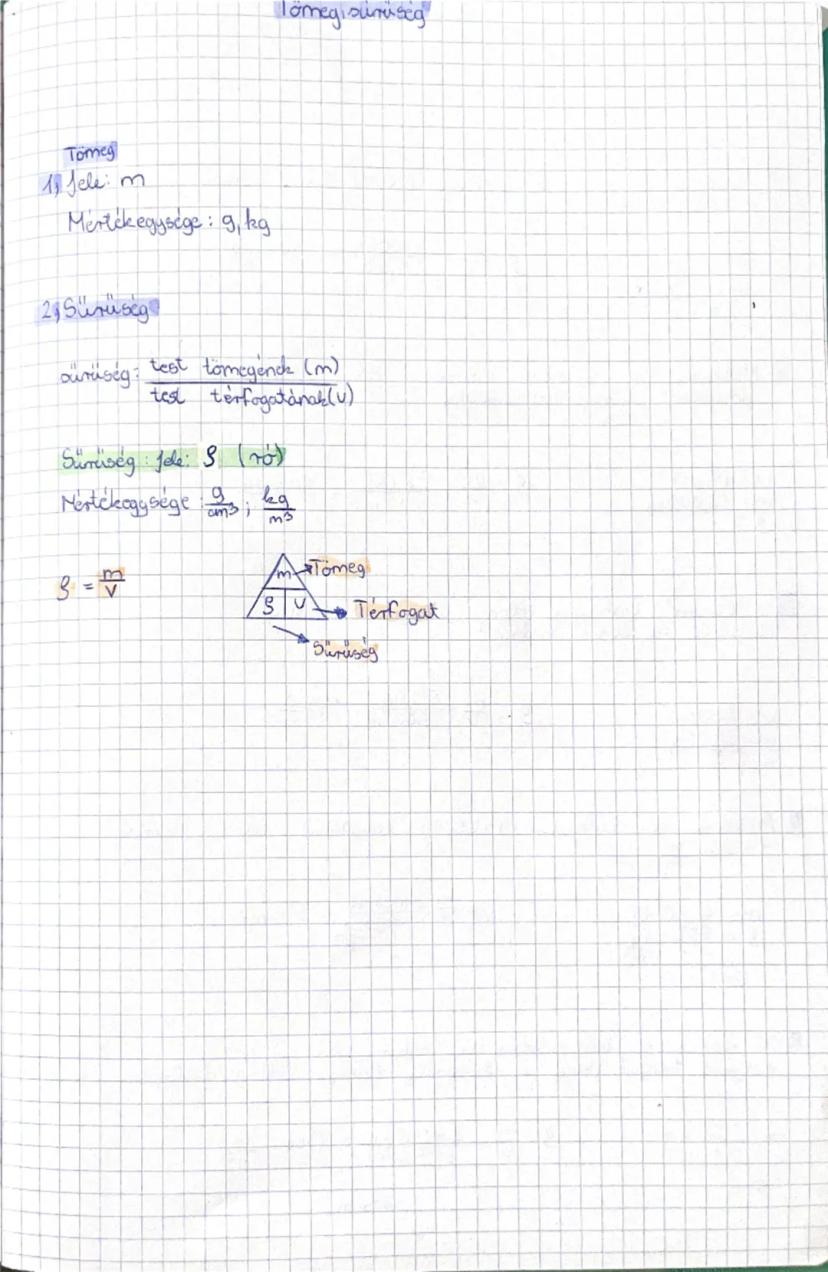 Tömeg, sűrűség
Tömeg
1, Jele: m
Mértékegysége: g, kg
2, Sűrűség
sűrűség: test tömegének (m)
test térfogatának (v)
Sűrűség jele: ρ (ró)
Mértékegysége: g/cm³ ; kg/m³
ρ = m/v
m → Tömeg
ρ | v → Térfogat
Sűrűség